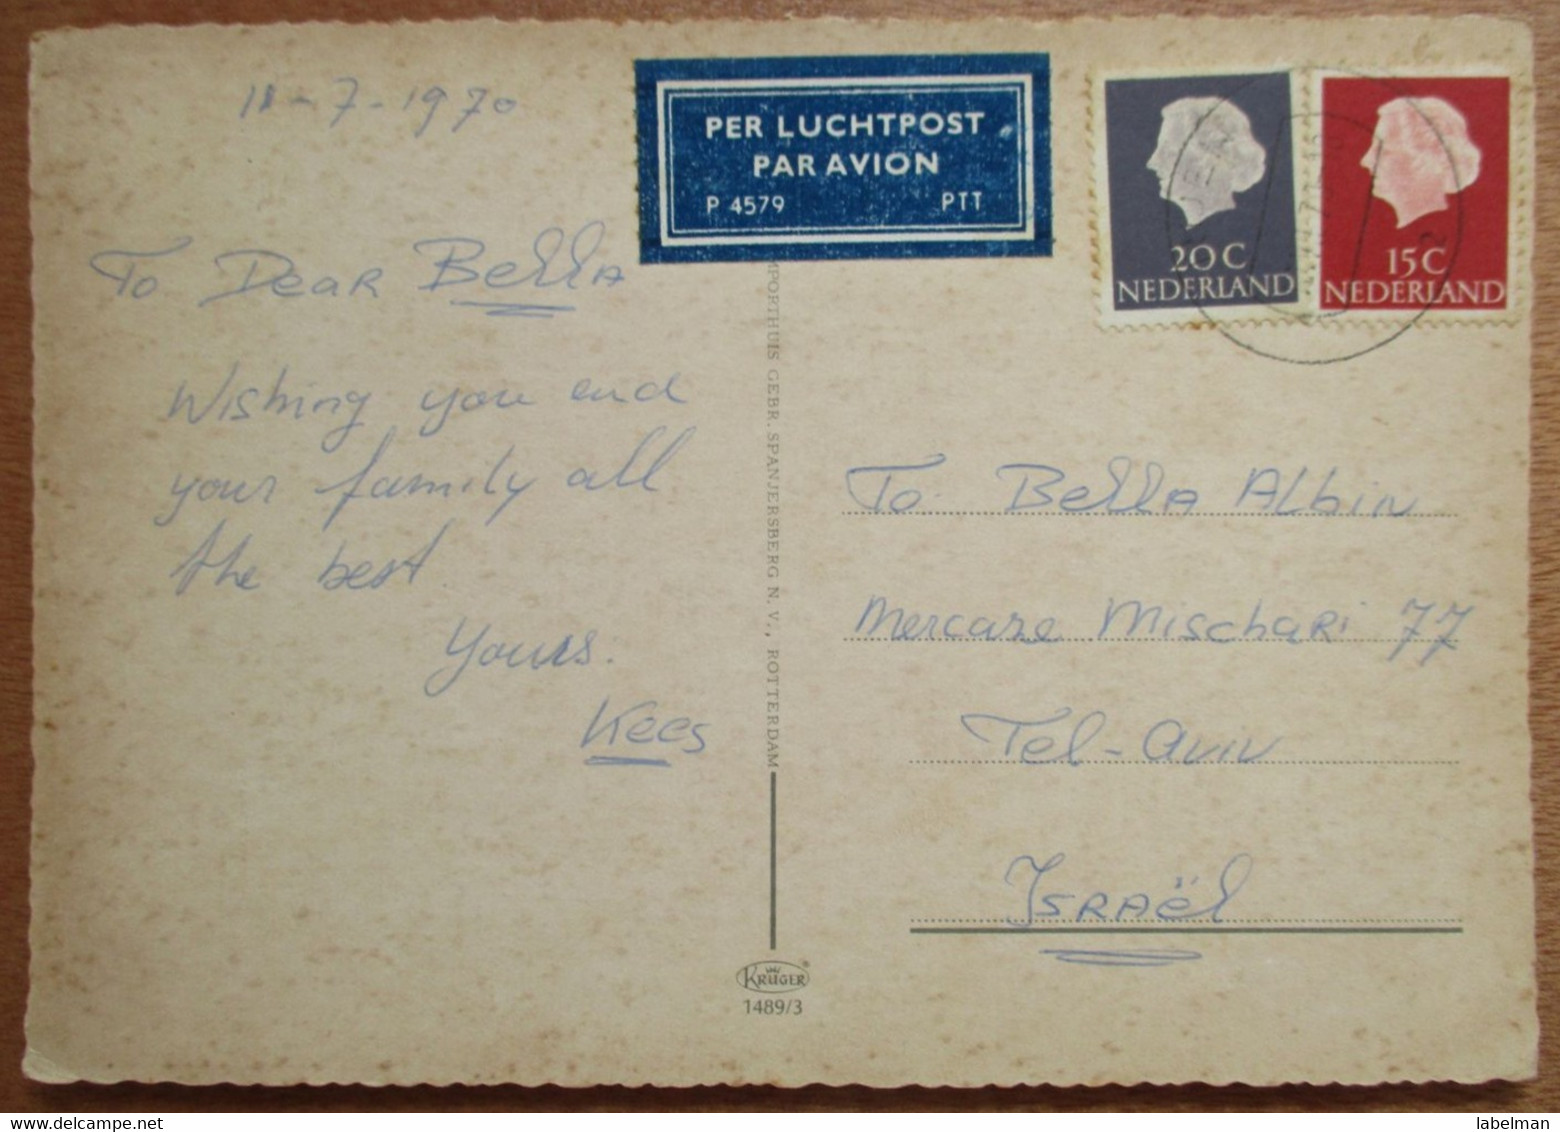 11-7-1970
PER LUCHTPOST
PAR AVION
P 4579 PTT
20 C
NEDERLAND
15 C
NEDERLAND
To Dear Bella
Wishing you and
your family all
the best.
Yours.
Kees
IMPORTHUIS GEBR. SPANJERSBERG N.V., ROTTERDAM
KRÜGER
1489/3
To Bella Albin
Mercaze Mischari 77
Tel-Aviv
Israël
labelman
delcampe.net